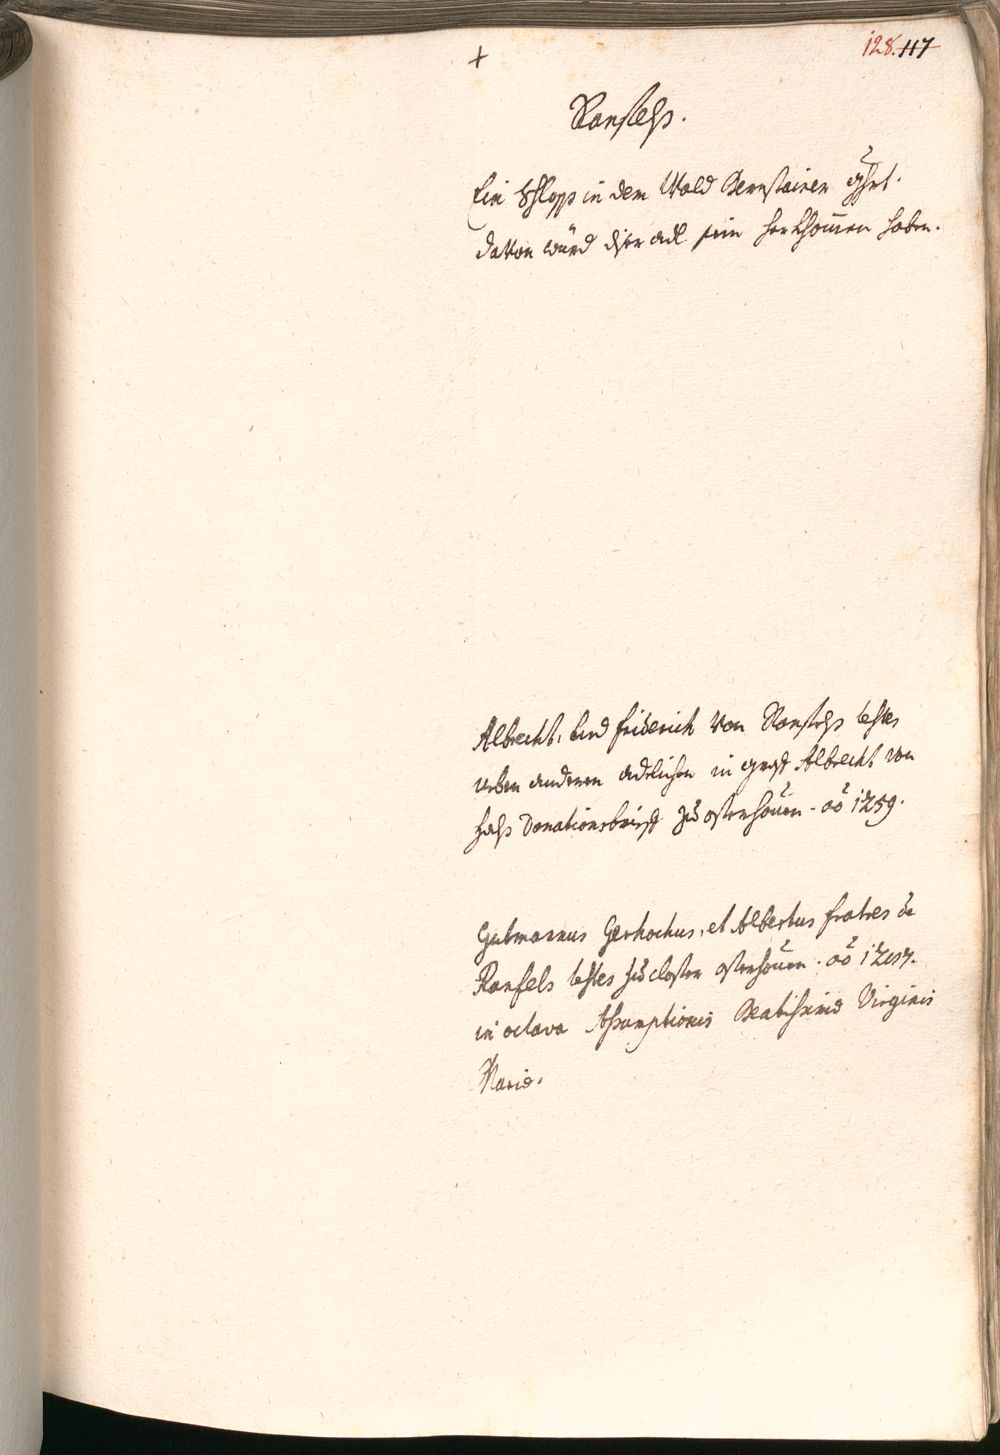 +
128. 117
Ranfels.
Ein Schloss in dem Wald Bernstainer ghrt.
dauon würd diser adl sein herkhom̄en haben.
Albrecht, und Friderich von Ranfels testes
neben anderen adelichen in Albrecht von
Hals donationsbrieff zu osterhouen. aō 1259.
Gutmannus Gerhochus, et Albertus fratres de
Ranfels testes zu closter osterhouen. aō
in octava Assumptionis Beatissimæ Virginis
Mariæ.